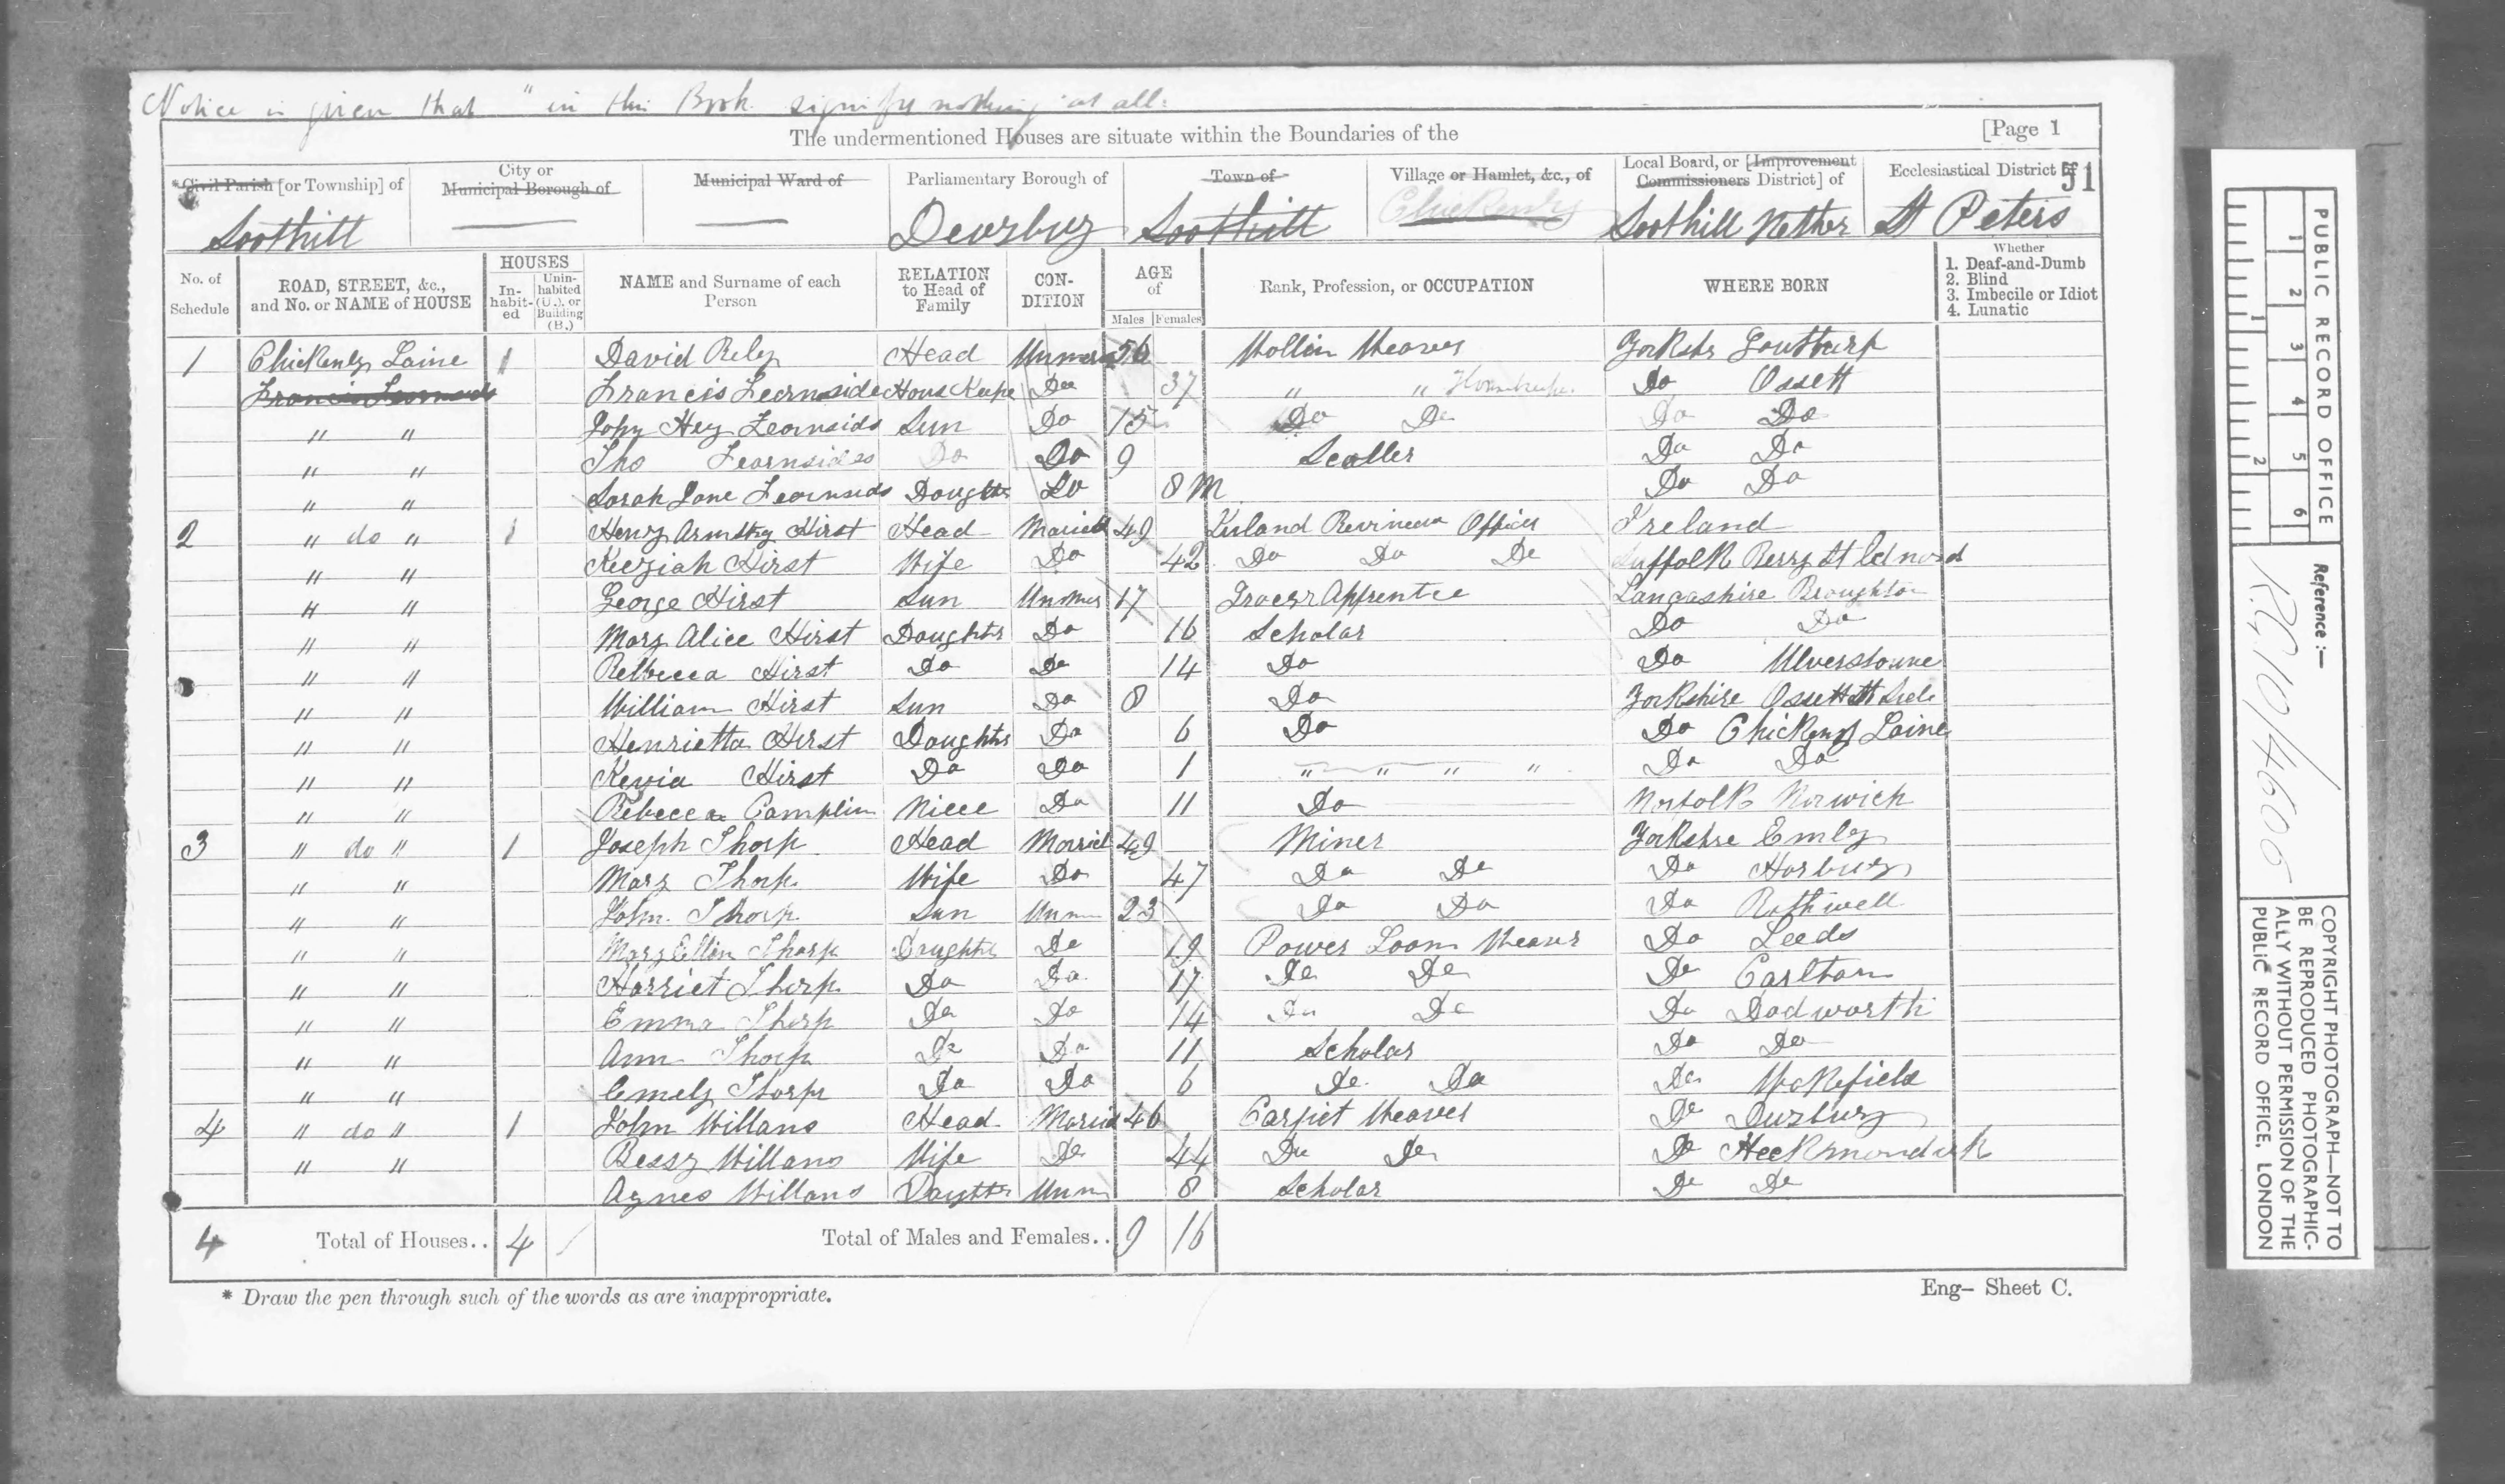 Notice is given that " in this Book signifys nothing at all.
The undermentioned Houses are situate within the Boundaries of the [Page 1
*Civil Parish [or Township] of City or Municipal Borough of Municipal Ward of Parliamentary Borough of Town of Village or Hamlet, &c., of Local Board, or [Improvement Commissioners District] of Ecclesiastical District of 51
Soothill Dewsbury Soothill Chickenley Soothill Nether St Peters
No. of Schedule ROAD, STREET, &c., and No. or NAME of HOUSE HOUSES In-habit-ed Unin-habited (U.), or Building (B.) NAME and Surname of each Person RELATION to Head of Family CON-DITION AGE of Males Females Rank, Profession, or OCCUPATION WHERE BORN Whether 1. Deaf-and-Dumb 2. Blind 3. Imbecile or Idiot 4. Lunatic
1 Chickenly Laine 1 David Reley Head Unmar 56 Wollin Weaver Yorkshr Gouthurp
Francis Learnside Hous Keepe Do 37 " " Housekeeper Do Ossett
" " John Hey Learnsids Sun Do 15 Do Do Do Do
" " Tho Learnsides Do Do 9 Scoller Do Do
" " Sarah Jane Learnsids Doughter Do 8 M Do Do
2 " do " 1 Henry Armstrg Hirst Head Maried 49 Inland Revineu Officer Ireland
" " Keeziah Hirst Wife Do 42 Do Do Do Suffolk Berry St Edmond
" " George Hirst Sun Unmar 17 Groceer Apprentce Langashire Broughton
" " Mary Alice Hirst Doughter Do 16 Scholar Do Do
" " Rebbecca Hirst Do Do 14 Do Do Ulverstoune
" " William Hirst Sun Do 8 Do Yorkshire Ossett St Side
" " Henrietta Hirst Doughter Do 6 Do Do Chickenly Laine
" " Kezia Hirst Do Do 1 " " " " Do Do
" " Rebecca Camplin Niece Do 11 Do Norfolk Norwich
3 " do " 1 Joseph Thorp Head Maried 49 Miner Yorkshre Emley
" " Mary Thorp Wife Do 47 Do Do Do Horbury
" " John Thorp Sun Unm 23 Do Do Do Rothwell
" " Mary Ellin Thorp Daughter Do 19 Power Loom Weaver Do Leeds
" " Harriet Thorp Do Do 17 Do Do Do Carlton
" " Emma Thorp Do Do 14 Do Do Do Dodworth
" " Ann Thorp Do Do 11 Scholar Do Do
" " Emely Thorp Do Do 6 Do Do Do Wakefield
4 " do " 1 John Willans Head Maried 46 Carpiet Weaver Do Duzbury
" " Bessy Willans Wife Do 44 Do Do Do Heckmondwk
Agnes Willans Daughter Unm 8 Scholar Do Do
4 Total of Houses.. 4 Total of Males and Females.. 9 16
* Draw the pen through such of the words as are inappropriate. Eng- Sheet C.
PUBLIC RECORD OFFICE
1 2 3 4 5 6
1 2
Reference :-
RG 10/4606
COPYRIGHT PHOTOGRAPH—NOT TO
BE REPRODUCED PHOTOGRAPHIC-
ALLY WITHOUT PERMISSION OF THE
PUBLIC RECORD OFFICE, LONDON